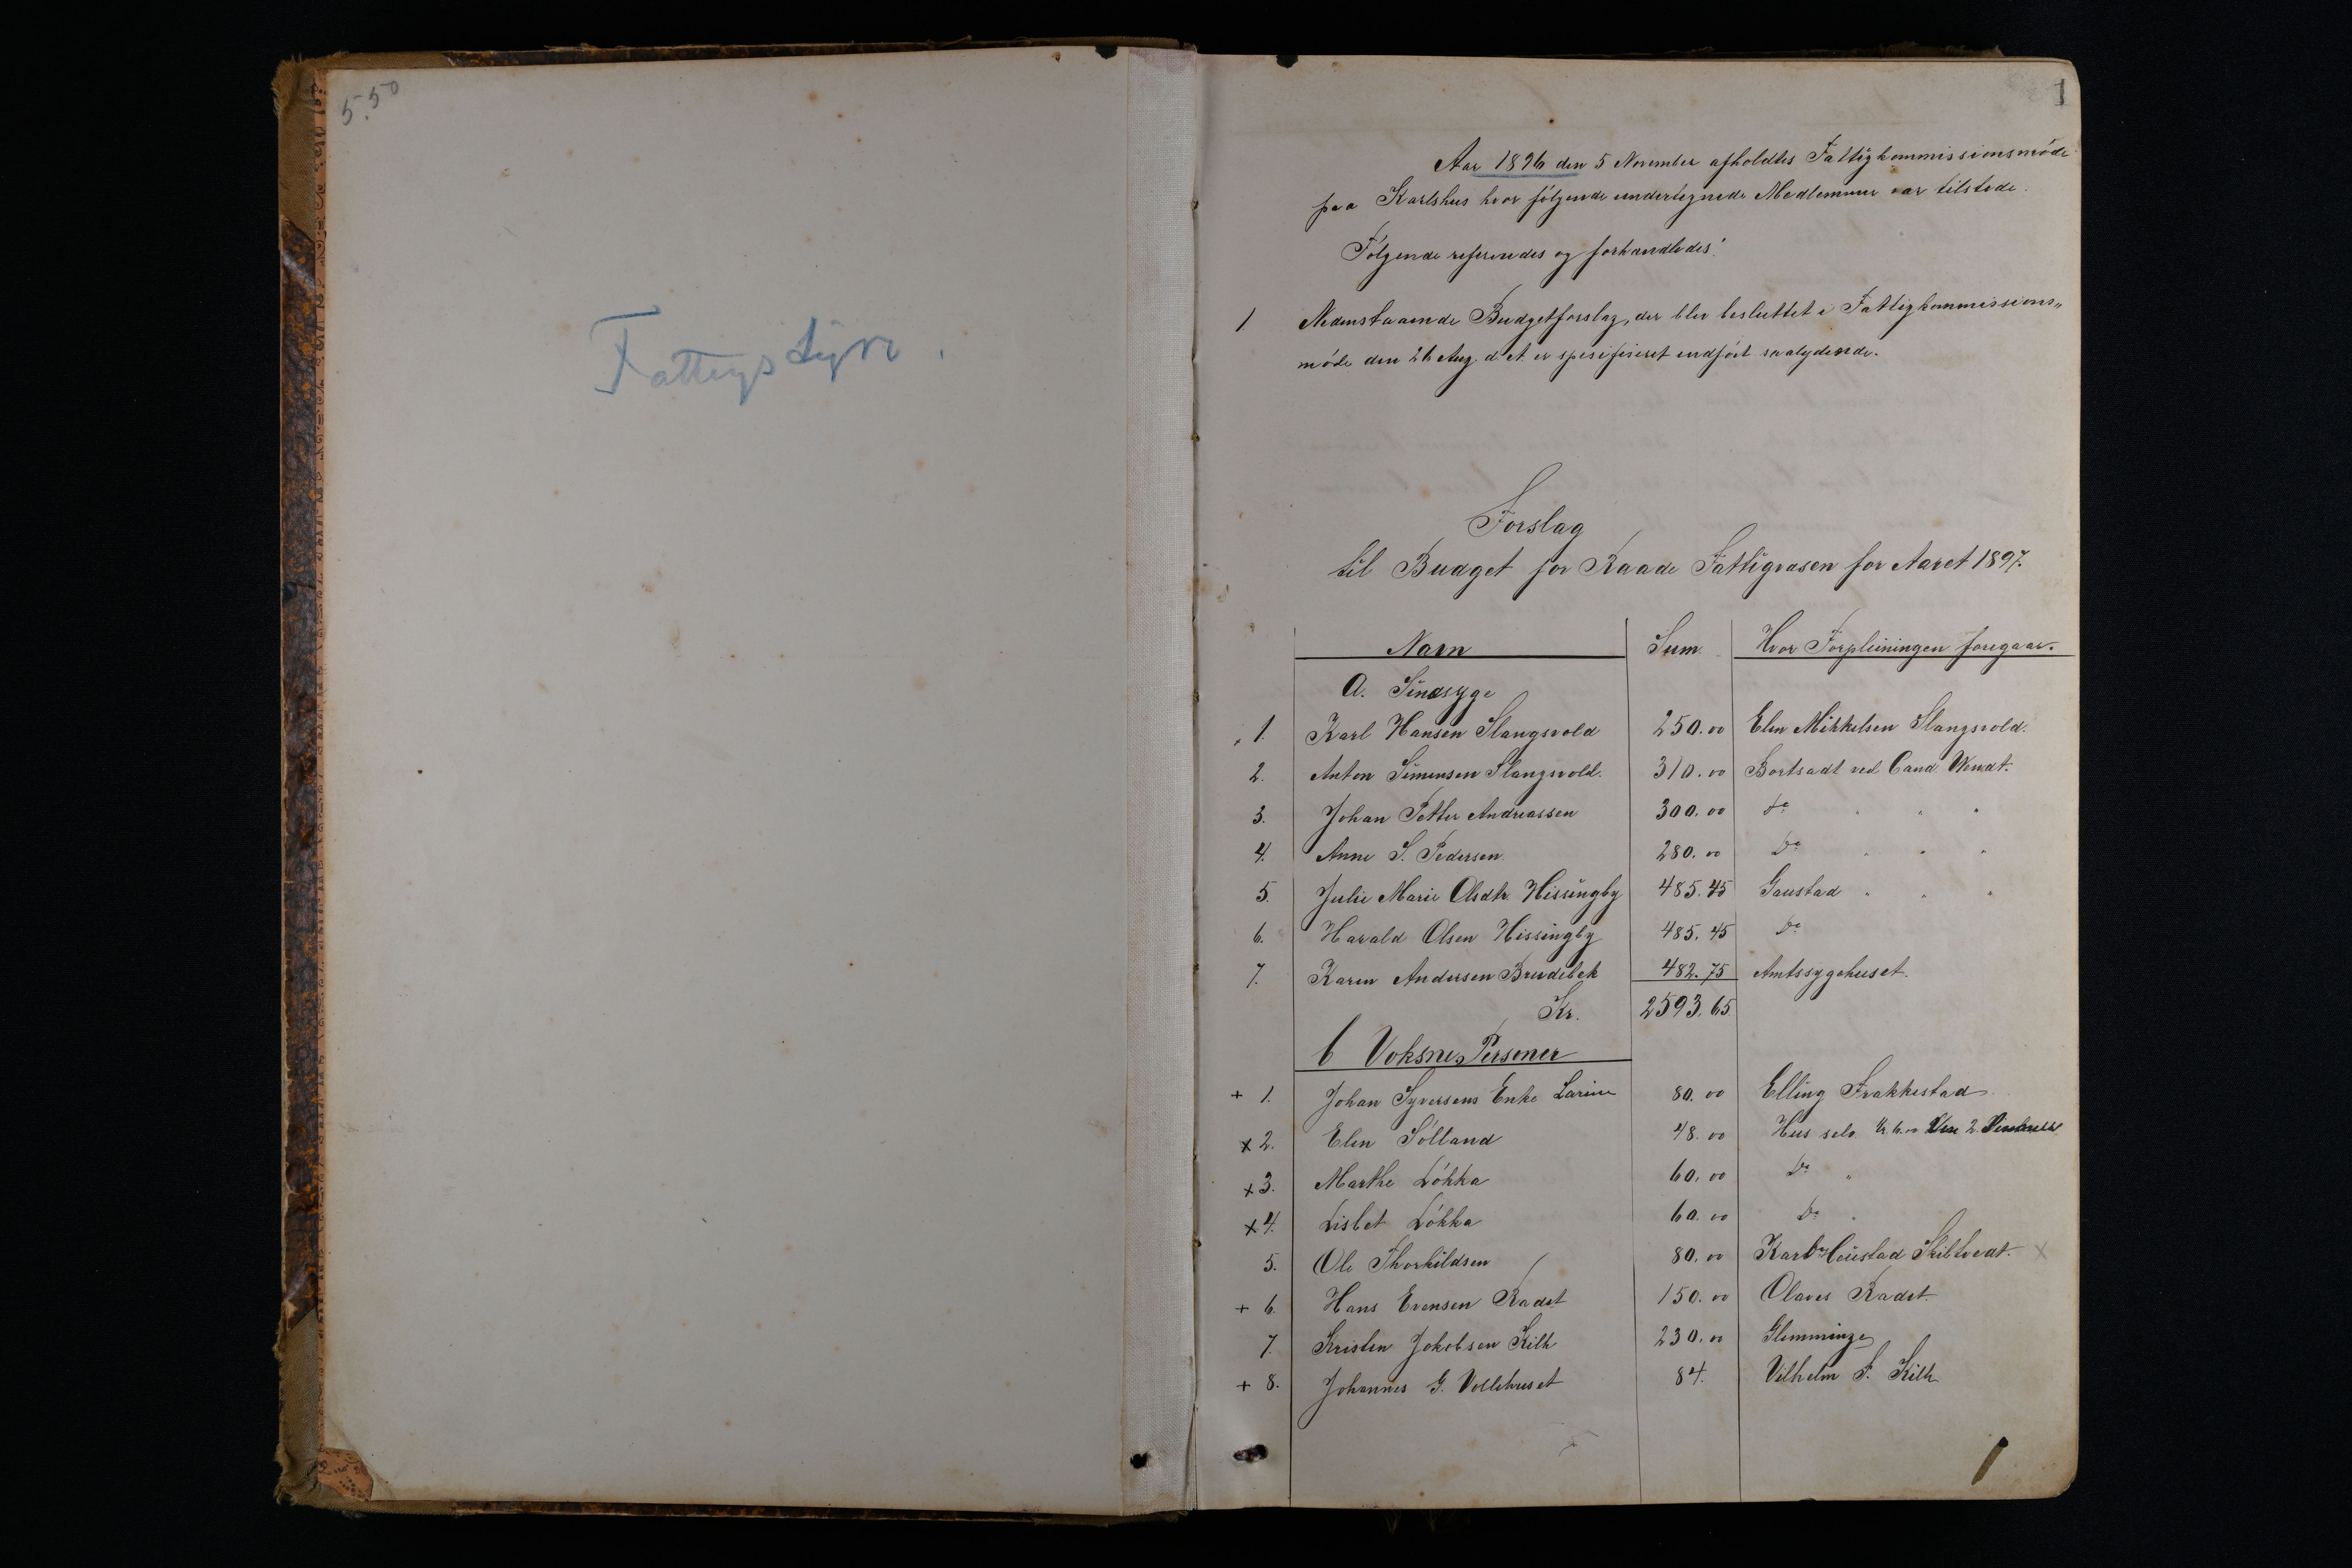 5.50
Fattigstyre.
1
Aar 1896 den 5 November afholdtes Fattigkommissionsmöde
paa Karlshus hvor fölgende undertegnede Medlemmer var tilstede.
Fölgende refereredes og forhandledes:
1 Nedenstaaende Budgetforslag, der blev besluttet i Fattigkommissions„
möde den 26 Aug. d. A. er spesifiseret indfört saalydende.
Forslag
til Budget for Raade Fattigvæsen for Aaret 1897.
Navn Sum. Hvor Forpleiningen foregaar.
A. Sindsyge
1. Karl Hansen Slangsvold 250.00 Elen Mikkelsen Slangsvold.
2. Anton Simensen Slangsvold. 310.00 Bortsadt ved Cand. Wendt.
3. Johan Petter Andreassen 300.00 do " " "
4. Anne S. Pedersen. 280.00 Do " " "
5. Julie Marie Olsdtr. Hissingby 485.45 Gaustad " " "
6. Harald Olsen Hissingby 485.45 Do
7. Karen Andersen Brudebek 482.75 Amtssygehuset.
Kr. 2593.65
b Voksne Personer
+ 1. Johan Syversens Enke Larine 80.00 Elling Frakkestad
x 2. Elen Sölland 48.00 Hus selv.
x 3. Marthe Lökka 60.00 Do "
x 4. Lisbet Lökka 60.00 Do "
5. Ole Thorkildsen 80.00 Skiltvedt. x
+ 6. Hans Evensen Kadet 150.00 Olaves Kadet.
7. Kristen Jakobsen Kilh 230.00 Glemminge
+ 8. Johannes G. Vollehuset 84. Vilhelm F. Kilh
1